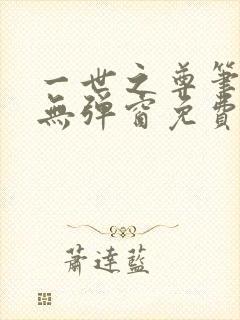 一世之尊筆
無彈窗免費
蕭達藍